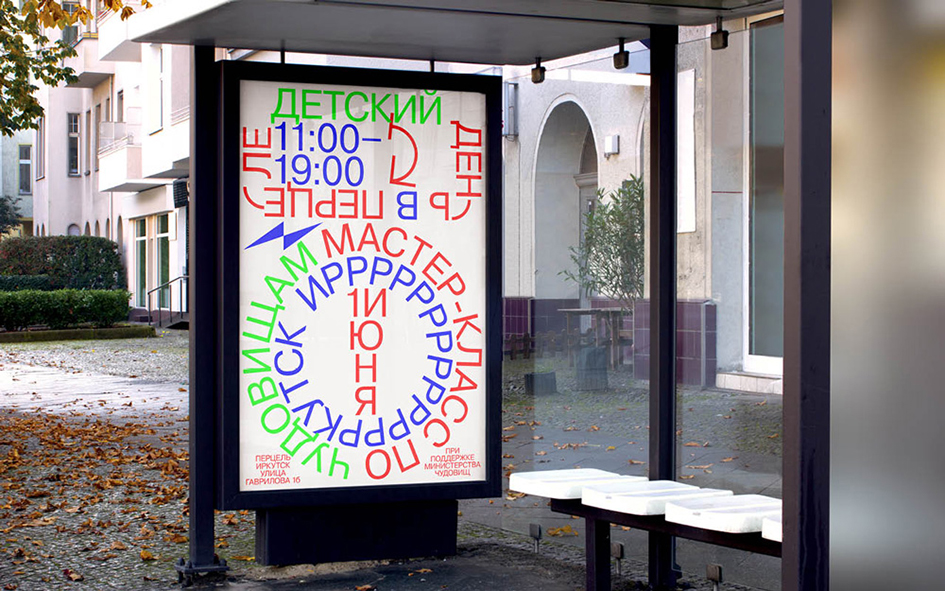 ДЕТСКИЙ
ДЕНЬ
В ПЕРЦЕЛЕ
11:00–
19:00
МАСТЕР-КЛАСС ПО ЧУДОВИЩАМ
ИРРРРРРРРРРРРРРРРКУТСК
1 ИЮНЯ
ПЕРЦЕЛЬ
ИРКУТСК
УЛИЦА
ГАВРИЛОВА 1б
ПРИ
ПОДДЕРЖКЕ
МИНИСТЕРСТВА
ЧУДОВИЩ